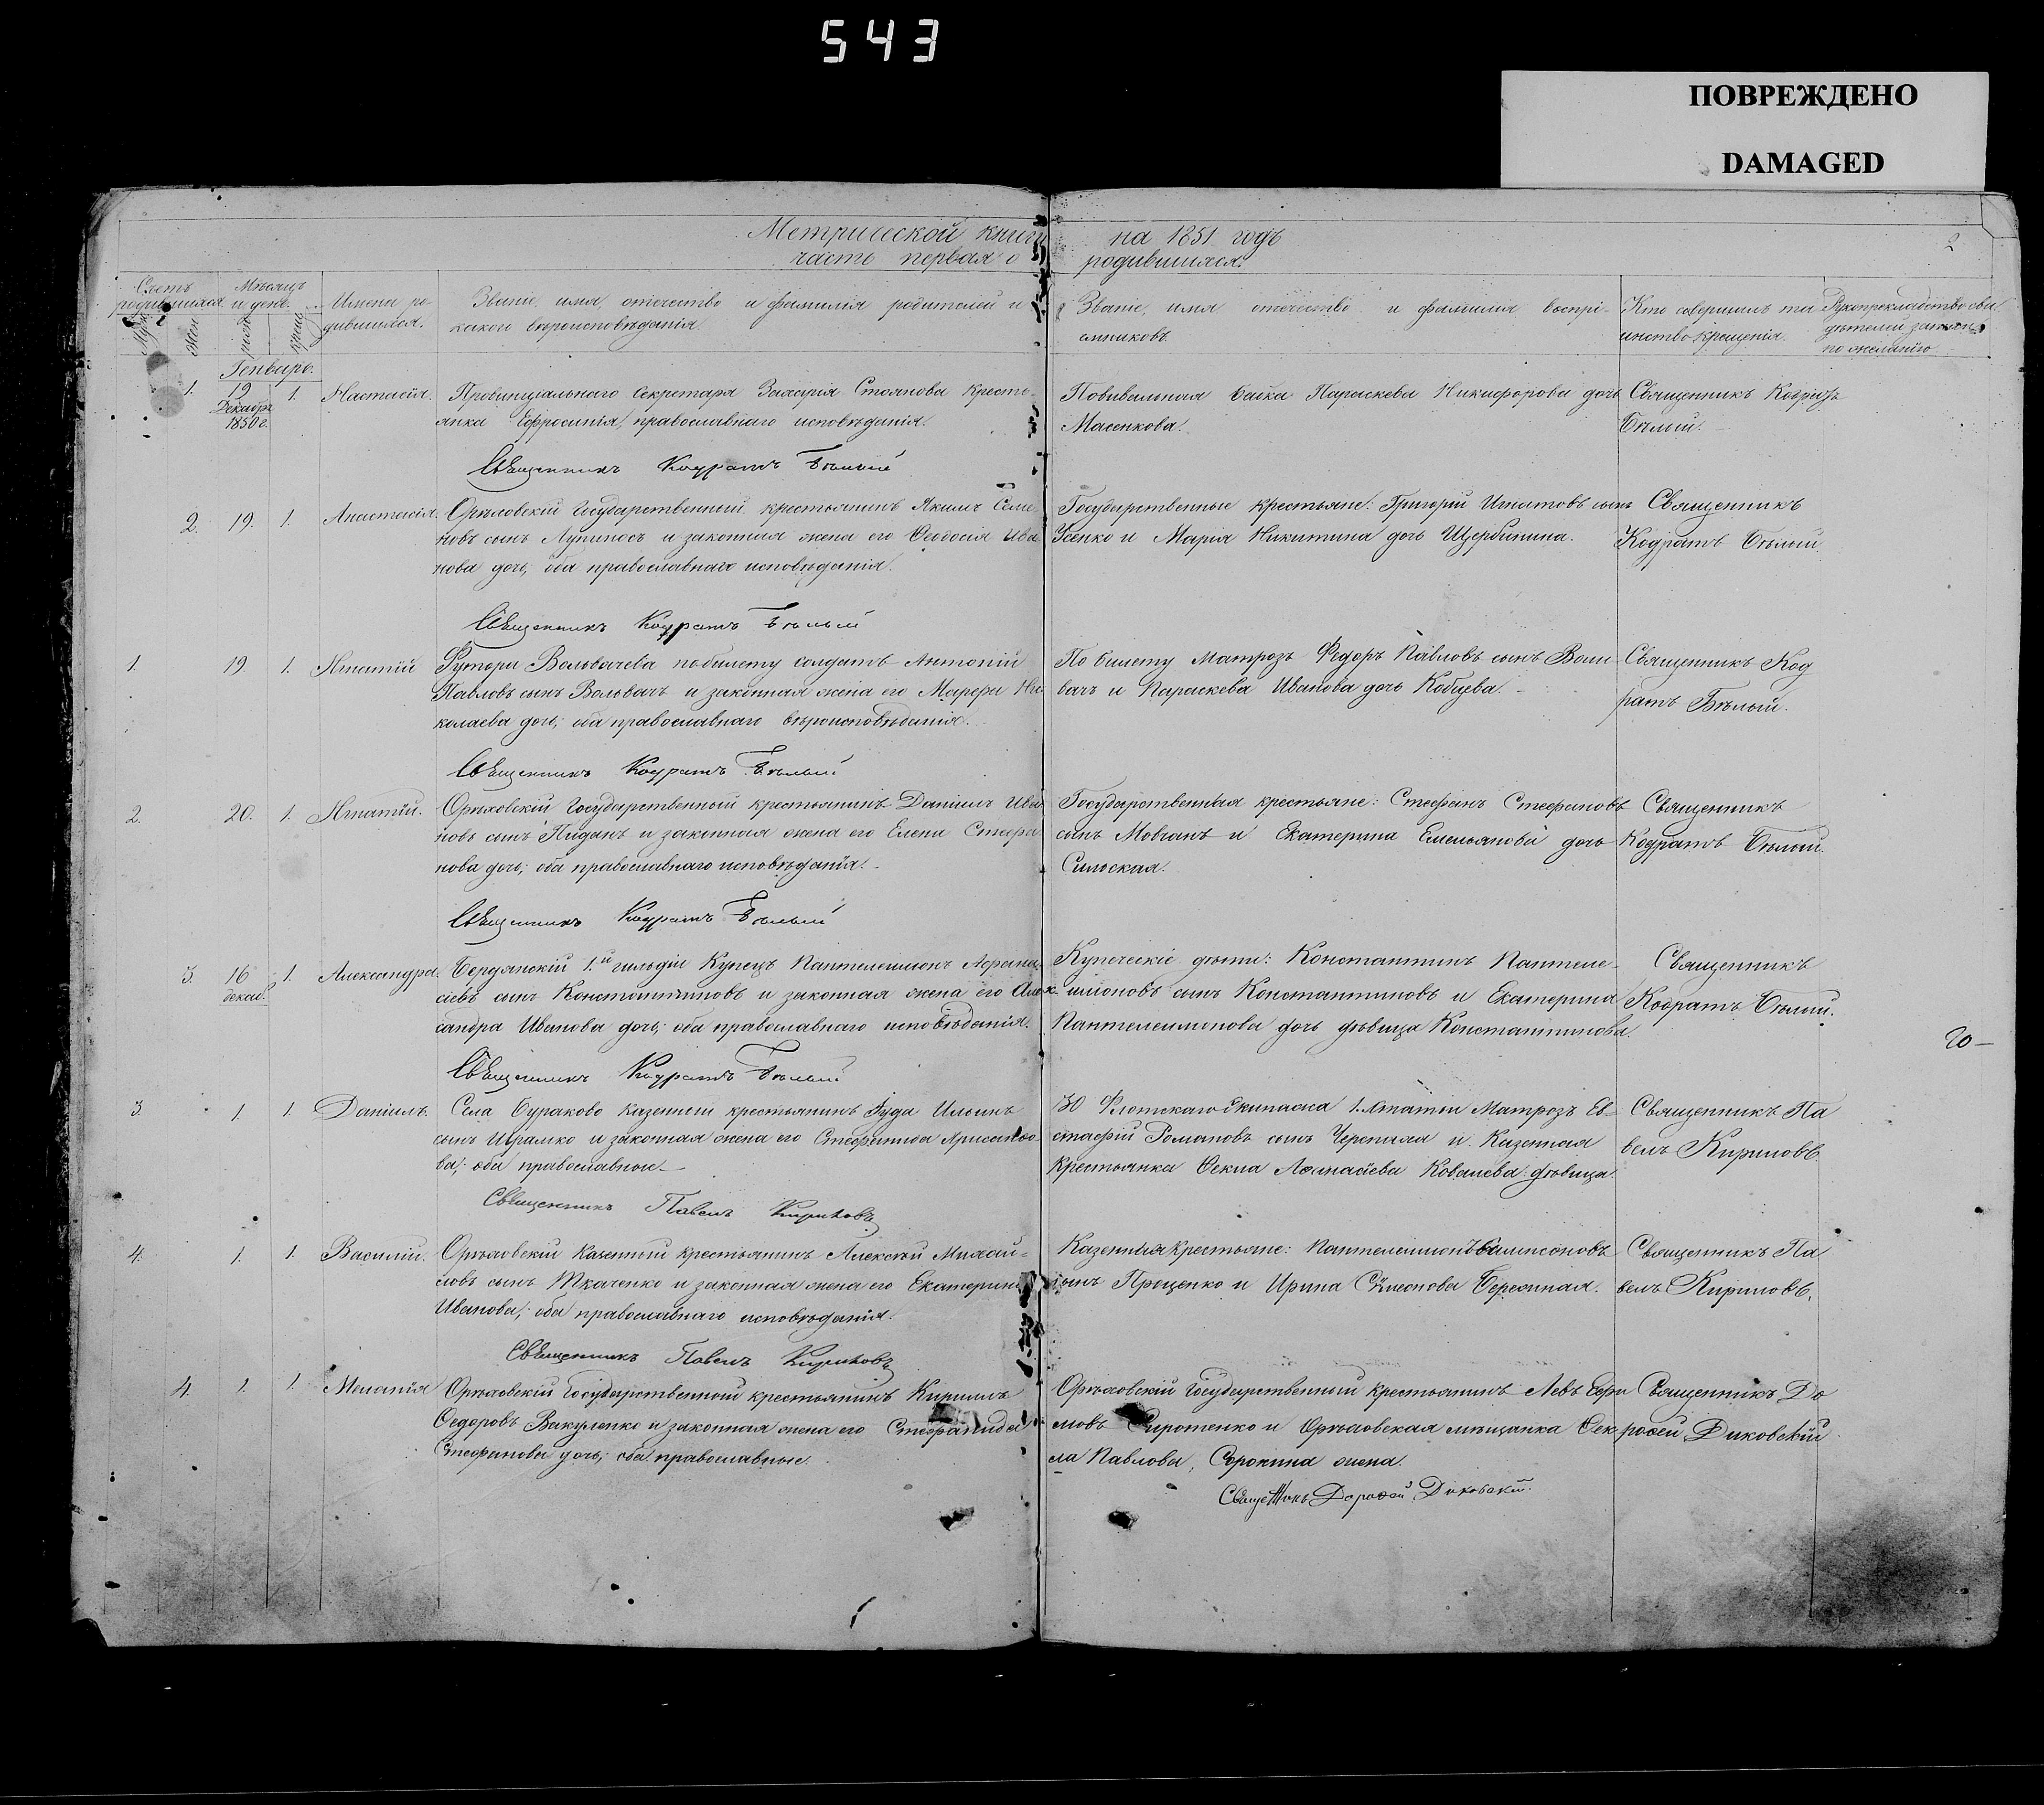 543
ПОВРЕЖДЕНО
DAMAGED
Метрической книги на 1851 годъ 2
часть первая о родившихся.
Счетъ родившихся
Муж.
Жен
Мѣсяцъ и день.
рожд
крещ
Имена ро
дившихся.
Званіе, имя, отчество и фамилія родителей и
какого вѣроисповѣданія.
Званіе, имя отчество и фамилія воспрі-
емниковъ.
Кто совершалъ та
инство крещенія.
Рукоприкладство сви
дѣтелей записи
по желанію.
Генварь.
1. 19 Декабря 1850 г. 1. Настасія.
Провинціальнаго Секретаря Захарія Стоянова кресть-
янка Ефросинія, православнаго исповѣданія.
Повивальная бабка Параскева Никифорова дочь
Масенкова.
Священникъ Кодратъ
Бѣлый.
Священникъ Кодратъ Бѣлый
2. 19. 1. Анастасія.
Орѣховскій Государственный крестьянинъ Якимъ Семе-
новъ сынъ Лупиносъ и законная жена его Ѳеодосія Ива
нова дочь, оба православнаго исповѣданія.
Государственные крестьяне: Григорій Игнатовъ сынъ
Усенко и Марія Никитина дочь Щербинина.
Священникъ
Кодратъ Бѣлый.
Священникъ Кодратъ Бѣлый
1. 19 1. Игнатій
Хутора Вольвачева по билету солдатъ Антоній
Павловъ сынъ Вольвачъ и законная жена его Марфа Ни-
колаева дочь; оба православнаго вѣроисповѣданія.
По билету Матрозъ Федоръ Павловъ сынъ Воль
вачъ и Параскева Иванова дочь Кобцева.
Священникъ Код
ратъ Бѣлый.
Священникъ Кодратъ Бѣлый
2. 20. 1. Игнатій.
Орѣховскій Государственный крестьянинъ Даніилъ Ива
новъ сынъ Пиданъ и законная жена его Елена Стефа
нова дочь; оба православнаго исповѣданія.
Государственныя крестьяне: Стефанъ Стефановъ
сынъ Мовчанъ и Екатерина Емельянова дочь
Сильская.
Священникъ
Кодратъ Бѣлый.
Священникъ Кодратъ Бѣлый
3. 16 декаб. 1. Александра.
Бердянскій 1.й гильдіи Купецъ Пантелеимонъ Афана-
сіевъ сынъ Константиновъ и законная жена его Алек-
сандра Иванова дочь; оба православнаго исповѣданія.
Купеческіе дѣти: Константинъ Пантеле-
имоновъ сынъ Константиновъ и Екатерина
Пантелеимонова дочь дѣвица Константинова.
Священникъ
Кодратъ Бѣлый.
20—
Священникъ Кодратъ Бѣлый
3 1 1. Даніилъ.
Села Бураково казенный крестьянинъ Іуда Ильинъ
сынъ Шрамко и законная жена его Стефанида
ва; оба православные—
30 Флотскаго Экипажа Матрозъ Ев-
стафій Романовъ сынъ Черепаха и Казенная
крестьянка Ѳекла Аѳанасіева Ковалева дѣвица.
Священникъ Па
велъ Кириловъ.
Священникъ Павелъ Кириловъ
4. 1. 1. Василій.
Орѣховскій казенный крестьянинъ Алексѣй Михай-
ловъ сынъ Ткаченко и законная жена его Екатерина
Иванова; оба православнаго исповѣданія.
Казенныя крестьяне: Пантелеимонъ
сынъ Проценко и Ирина Симеонова Бережная.
Священникъ Па
велъ Кириловъ.
Священникъ Павелъ Кириловъ
4. 1. 1. Меланія
Орѣховскій Государственный крестьянинъ Кирилъ
Ѳедоровъ Вакуленко и законная жена его Стефанида
Стефанова дочь; оба православные.
Орѣховскій Государственный крестьянинъ Левъ Ефи
мовъ Сиротенко и Орѣховская мѣщанка Ѳек
ла Павлова, Сорокина жена.
Священникъ До
роѳей Диковскій
Священникъ Дороѳей Диковскій.